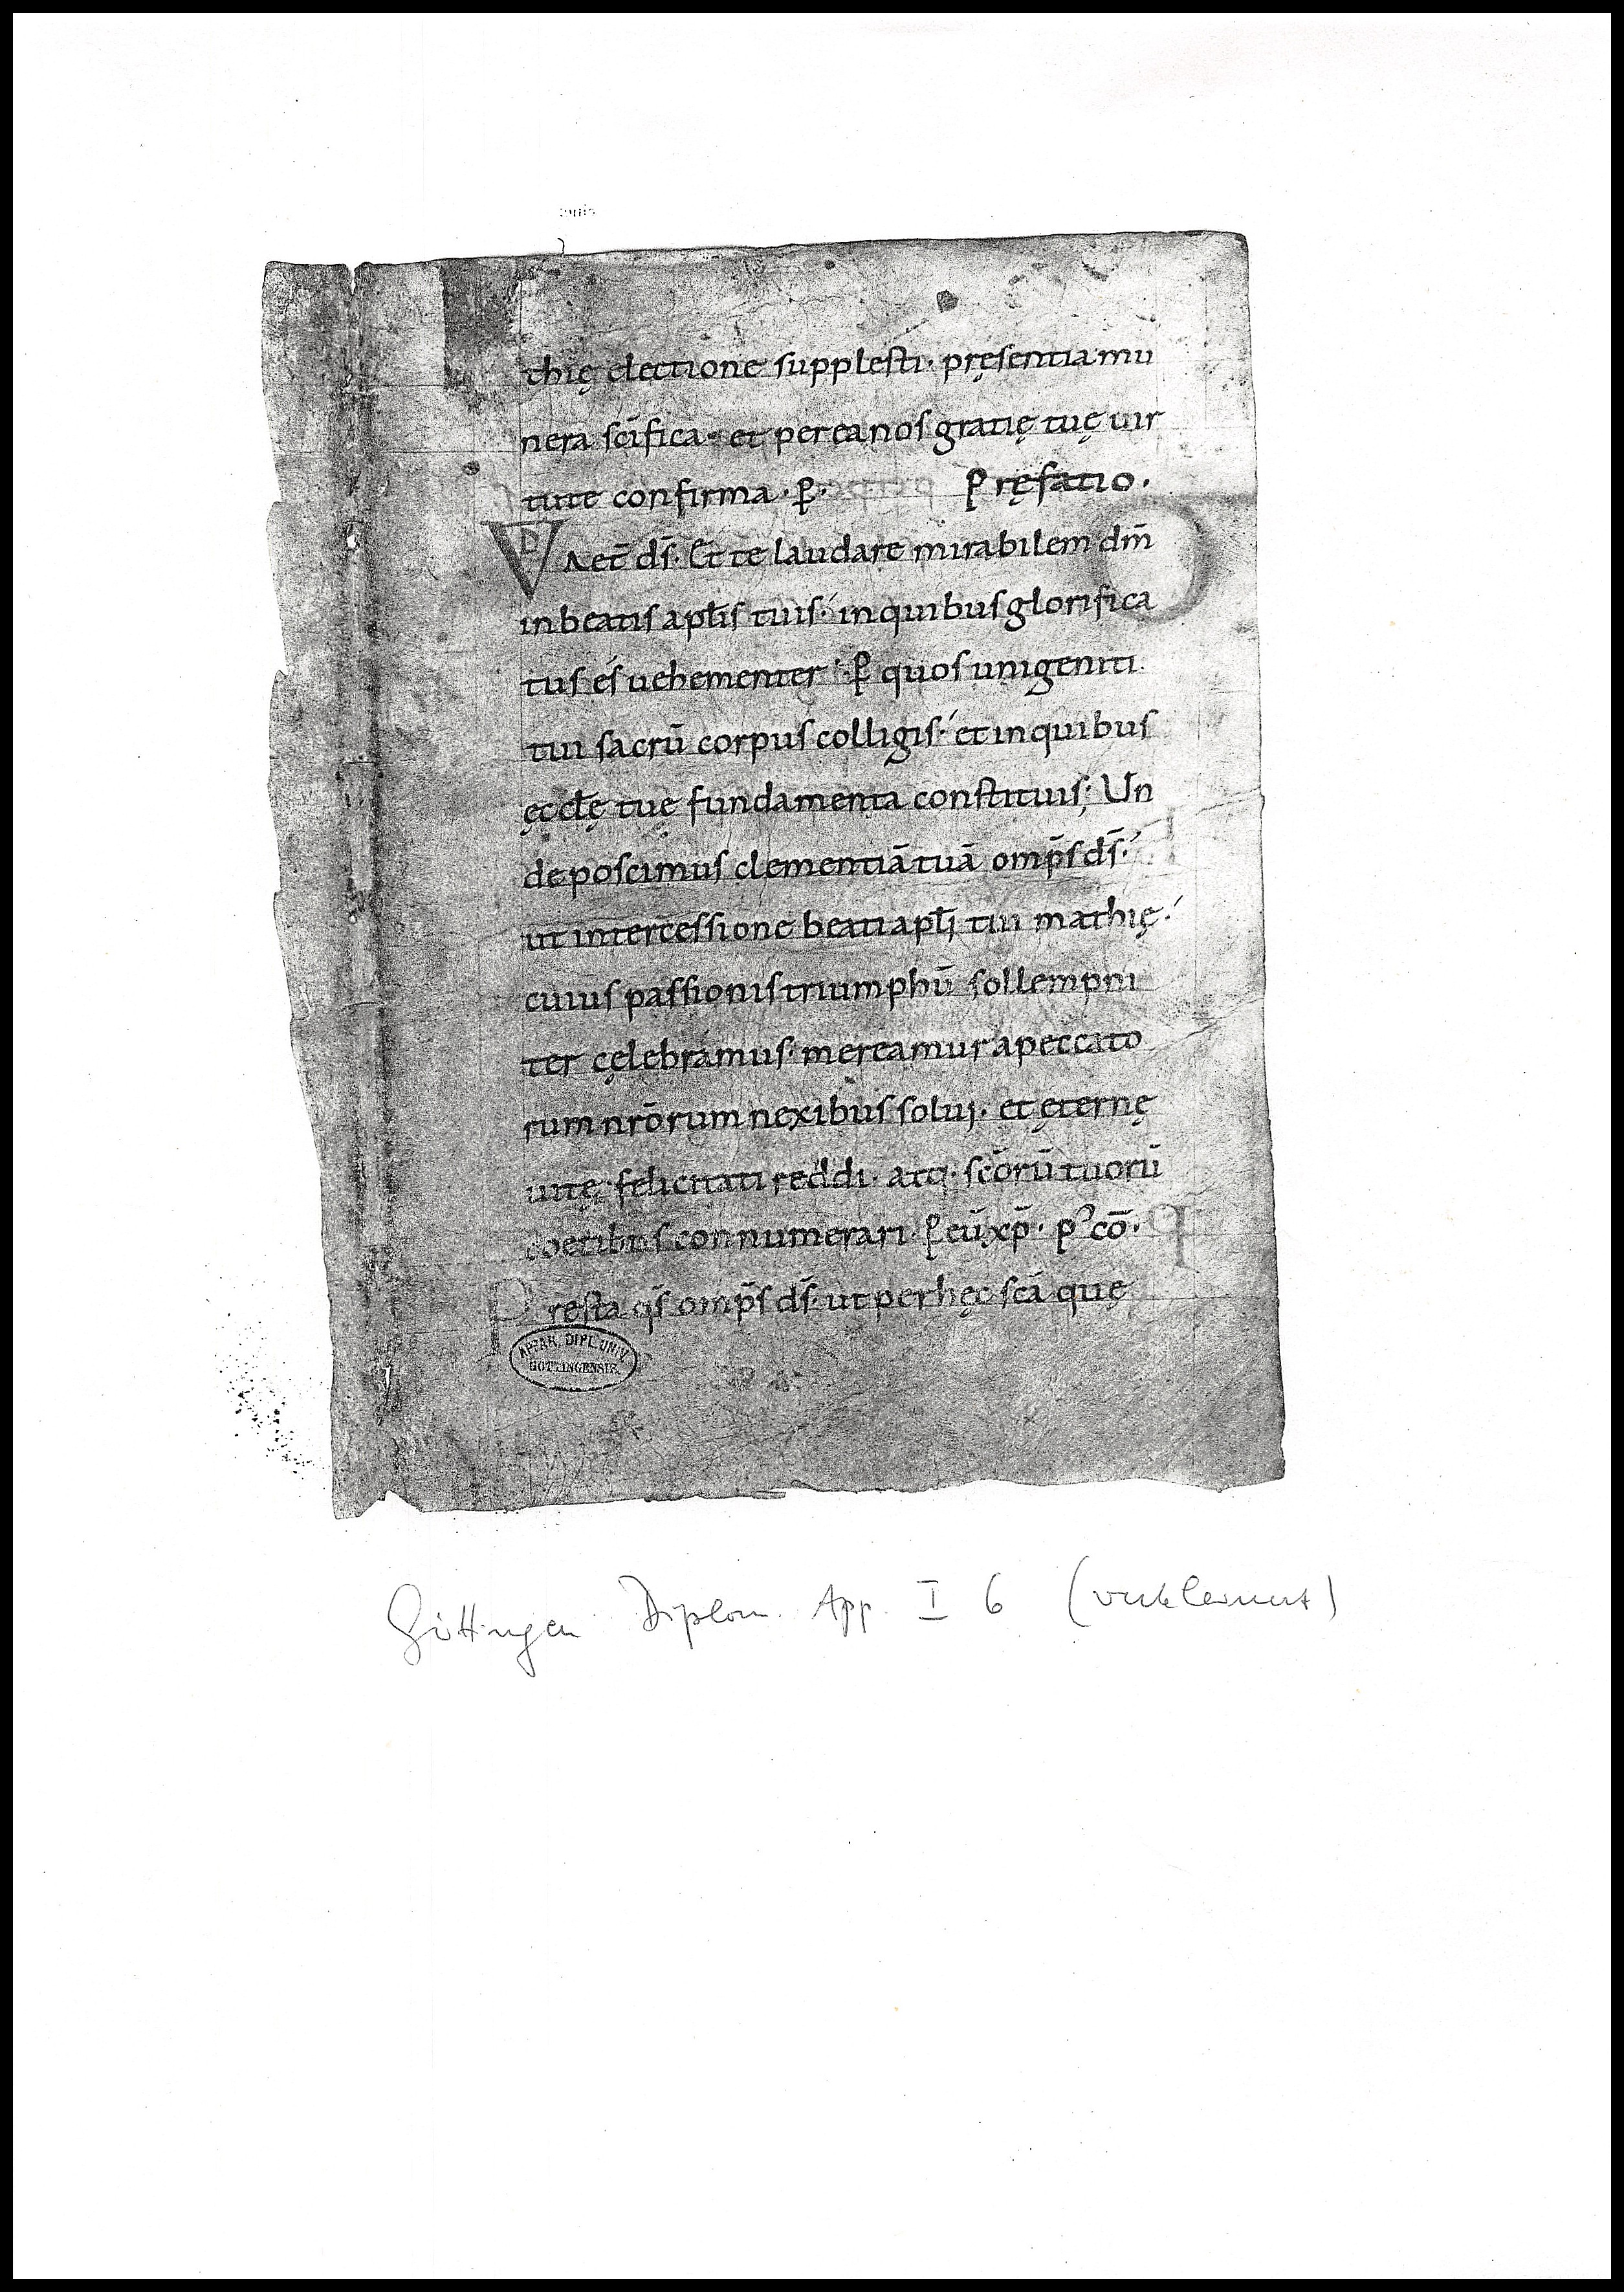 thię electione supplesti· pręsentia mu
nera sc̄ifica· et per ea nos gratię tuę uir
tute confirma· p̲· Pręfatio·
VD Aet̄ ds̄· Et te laudare mirabilem dm̄
in beatis apl̄is tuis· in quibus glorifica
tus és uehementer· p̲ quos unigeniti
tui sacrū corpus colligis· et in quibus
ęccłę tuę fundamenta constituis; Un
de poscimus clementiā tuā omp̄s ds̄·
ut intercessione beati apl̄i tui mathię·
cuius passionis triumphū sollempni
ter cęlebramus· mereamur a peccato
rum nr̄orum nexibus solui· et ęternę
uitę felicitati reddi· atq· sc̄orū tuorū
coetibus connumerari· p̲ eū xp̄· p᾿ cō·
Presta qs̄ omp̄s ds̄· ut per hęc sc̄a quę
APPAR. DIPL. UNIV.
GOTTINGENSIS.
Göttingen Diplom. App. I 6 (verkleinert)